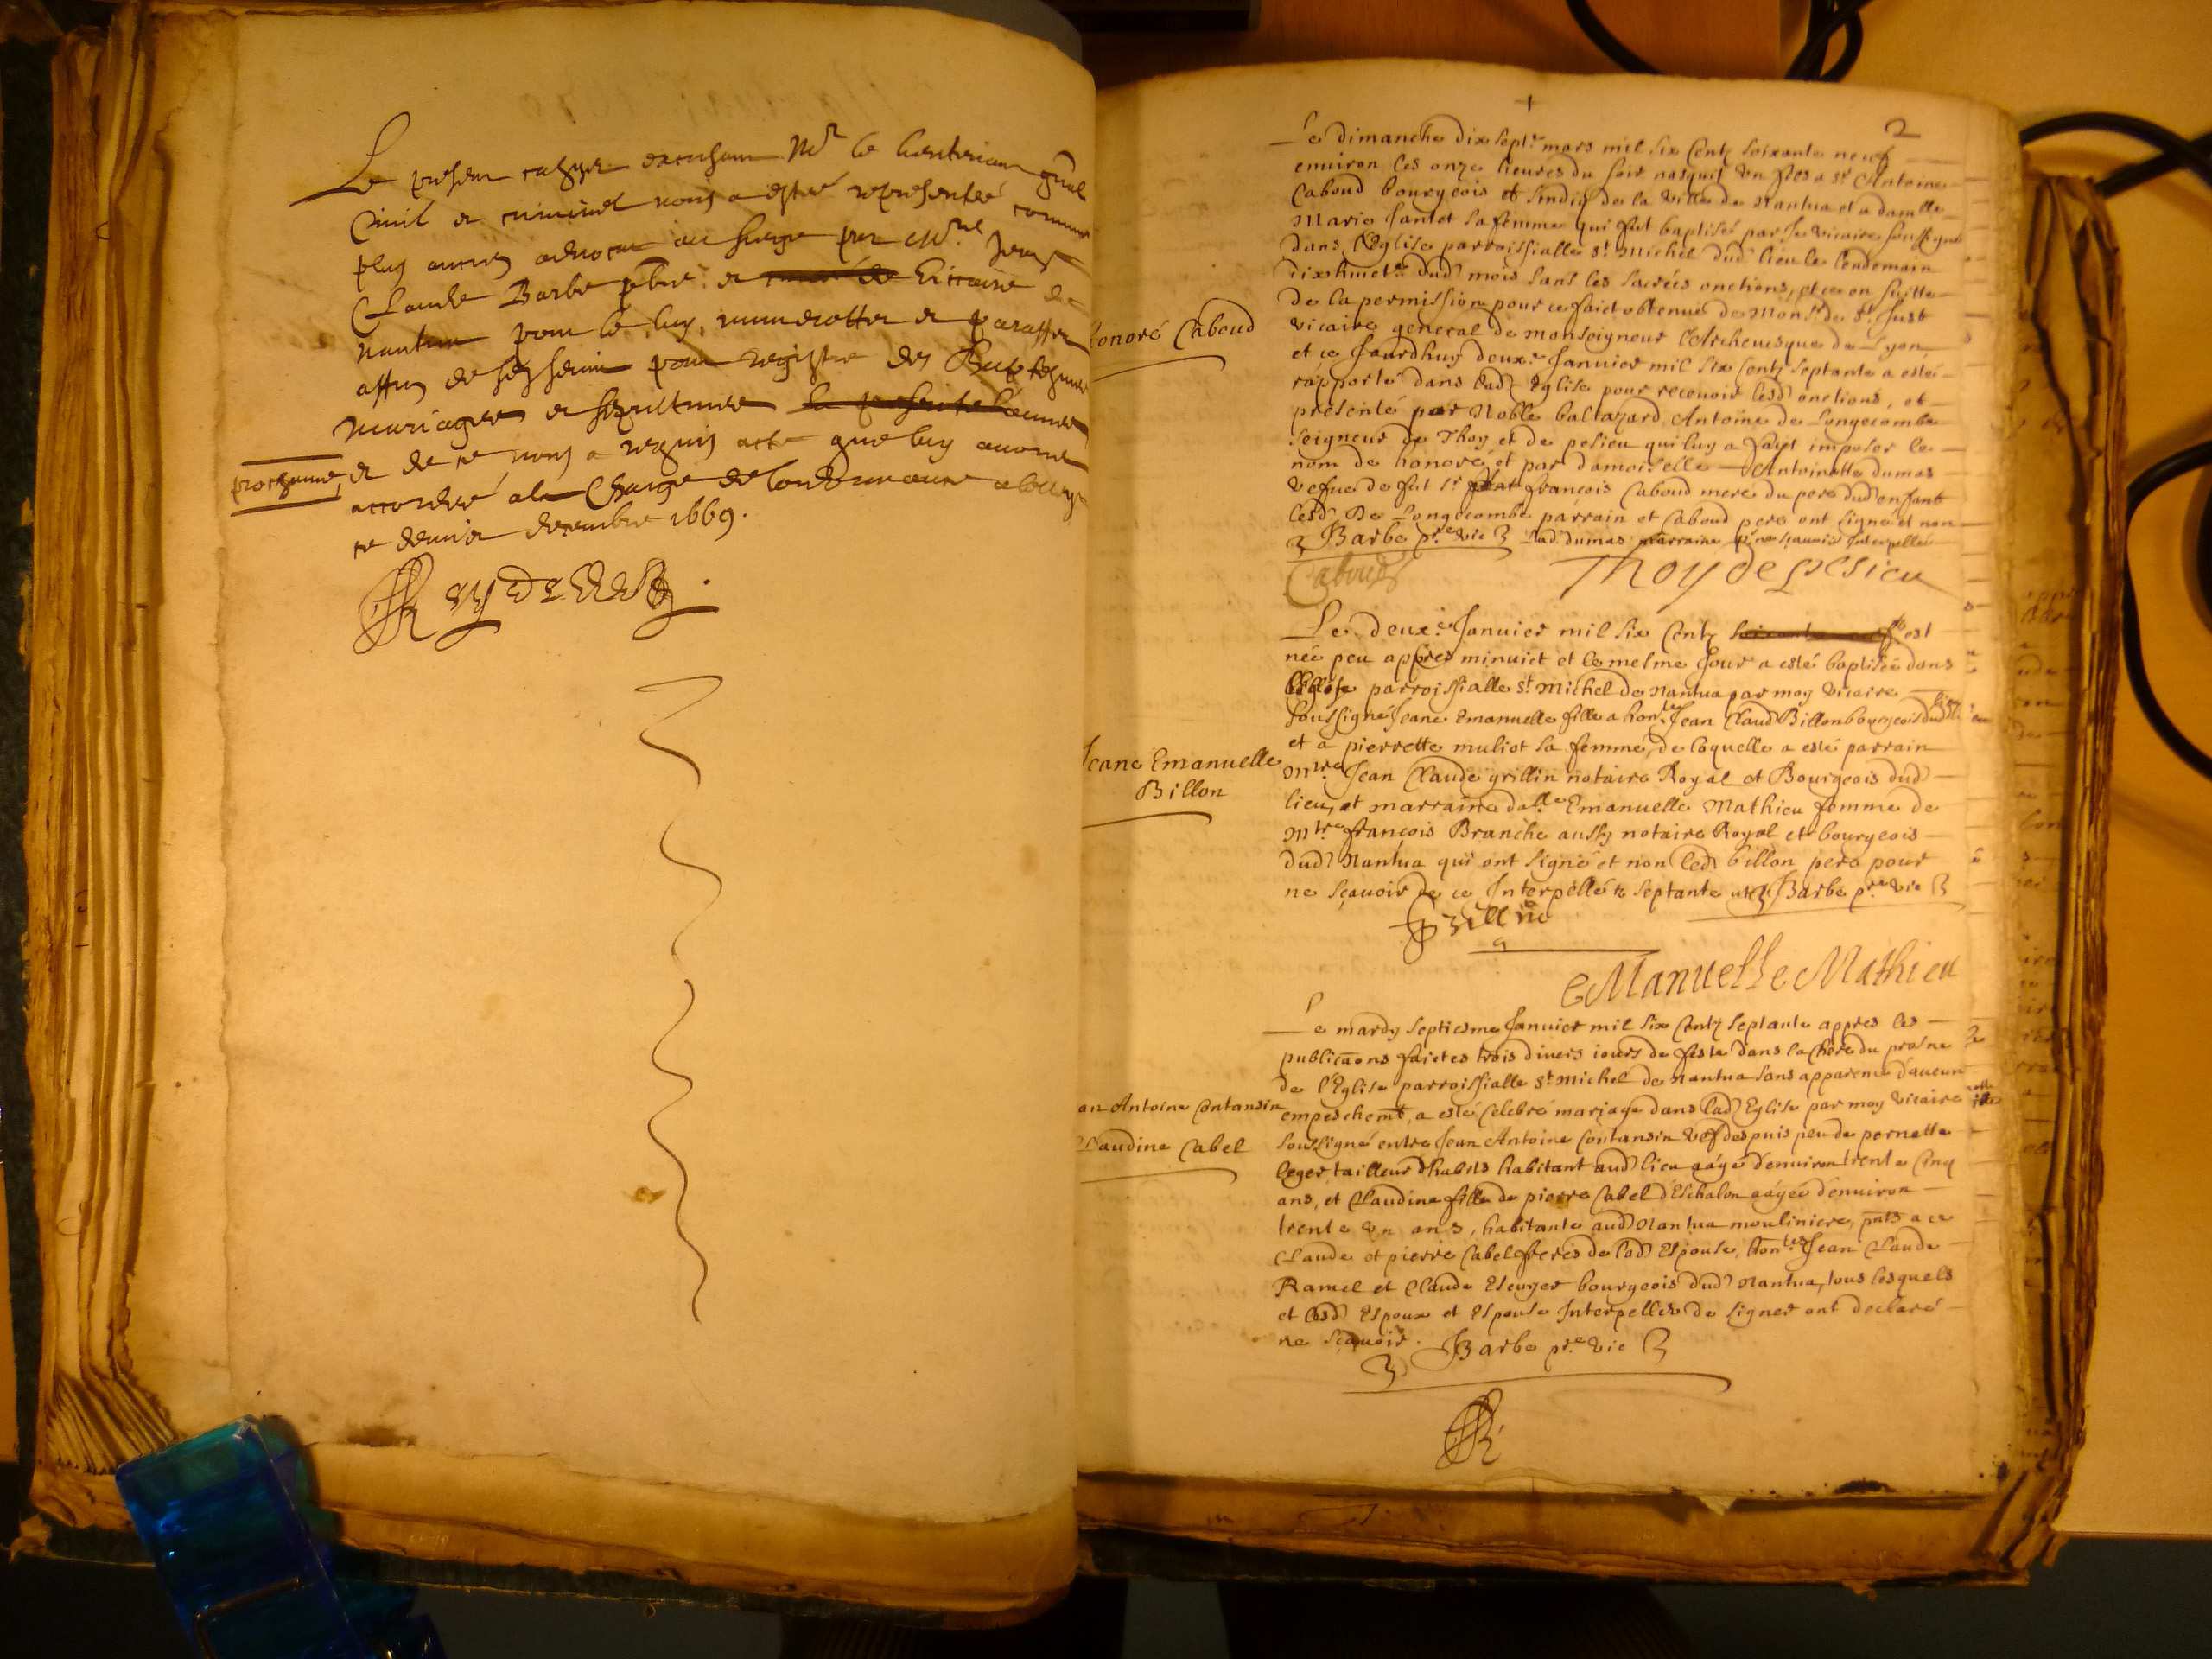 Le present cahyer Mr le lieutenant gnal
Civil et criminel nous a esté representé comme
plus antien advocat au siege par Mre Jean
Claude Barbe pbre et vicaire de
Nantua pour le luy numerotter et paraffer
affin de servir pour registre des Baptesmes
mariages et sepultures la presente année
prochaine
et de ce nous a requis acte que luy avons
accordé a la Charge de
ce dernier decembre 1669.
2
Le dimanche dix septe mars mil six Centz soixante neuf
environ les onze heures du soir nasquit un fils a sr Antoine
Caboud bourgeois et sindiq de la ville de Nantua et a damlle
Marie Jantet sa femme qui fut baptisé par le vicaire soussigné
dans l'Eglise parroissialle St Michel dud lieu le lendemain
dixhuict dud mois sans les sacrées onctions, et ce en suitte
de la permission pour ce faict obtenue de Monsr de St Just
vicaire general de monseigneur l'Archevesque de Lyon
et ce Jourdhuy deuxe Janvier mil six Centz septante a esté
rapporté dans lad Eglise pour recevoir lesd onctions, et
presenté par Noble baltazard Antoine de Longecombe
seigneur de Thoy et de pesieu qui luy a faict imposer le
nom de honoré, et par damoiselle Antoinette dumas
vefve de fut sr francois Caboud mere du pere dud enfant
lesd De Longecombe parrain et Caboud pere ont signé et non
lad dumas marraine pr ne scavoir Interpellée
Barbe pre vic
Honoré Caboud
Caboud
Thoy de pesieu
Le deuxe Janvier mil six Centz est
née peu appres minuict et le mesme Jour a esté baptisée dans
l'Eglise parroissialle St Michel de Nantua par moy vicaire
soussigné Jeane Emanuelle fille a honle Jean Claud Billon bourgeois dud lieu
et a pierrette muliot sa femme, de laquelle a esté parrain
Mtre Jean Claude grillin notaire Royal et Bourgeois dud
lieu, et marraine dalle Emanuelle Mathieu femme de
Mtre francois Branche aussy notaire Royal et bourgeois
dud Nantua qui ont signé et non led billon pere pour
ne sçavoir de ce Interpellé septante Barbe pre vic
Jeane Emanuelle
Billon
Grillin
eManuelle Mathieu
Le mardy septiesme Janvier mil six Centz septante appres les
publicaons faictes trois divers iours de feste dans la chere du prosne
de l'Eglise parroissialle St Michel de Nantua sans apparence d'aucun
empeschemt, a esté celebré mariage dans lad Eglise par moy vicaire
soussigné entre Jean Antoine Contansin vef despuis peu de pernette
leger tailleur d'habits habitant aud lieu aagé d'environ trente Cinq
ans, et Claudine fille de pierre Cabel d'Eschalon aagée d'environ
trente un ans, habitante aud Nantua mouliniere, pnts a ce
Claude et pierre Cabel freres de lad Espouse, honles Jean Claude
Ramel et Claude Esenger bourgeois dud Nantua, tous lesquels
et lesd Espoux et Espouse Interpellés de signer ont declaré
ne sçavoir. Barbe pre vic
an Antoine Contansin
Claudine Cabel